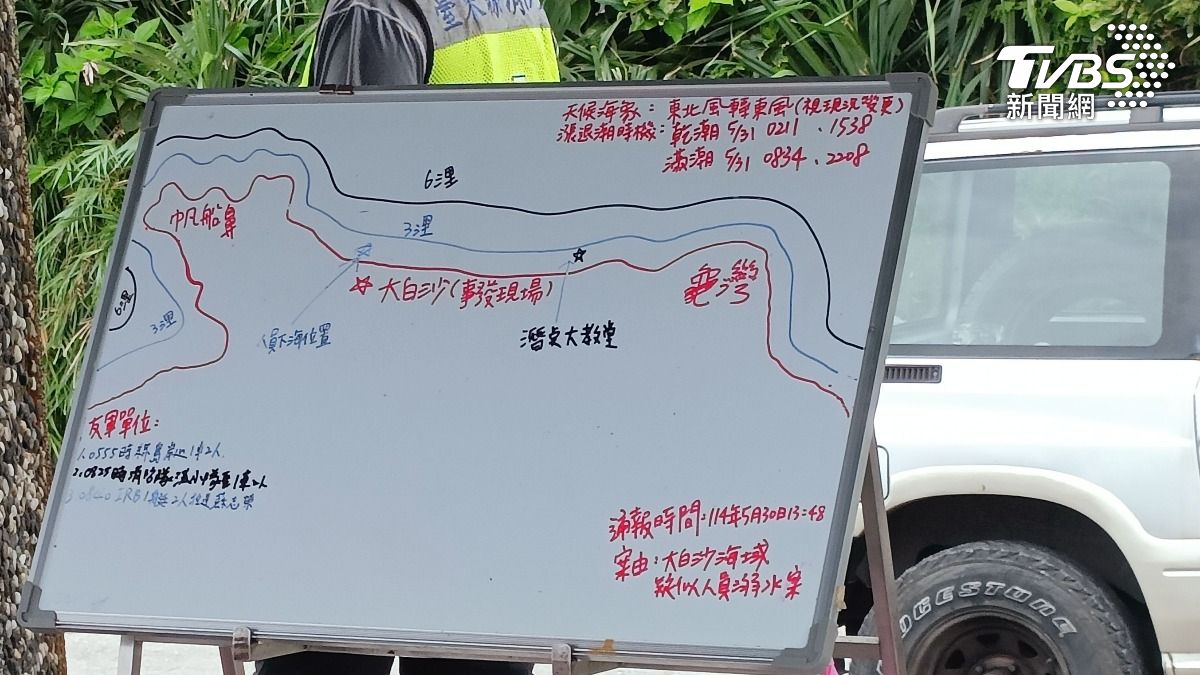 TVBS
新聞網
天候海象：東北風轉東風(視現況變更)
漲退潮時機：乾潮 5/31 0211、1538
滿潮 5/31 0834、2208
6浬
3浬
帆船鼻
大白沙(事發現場)
龜灣
6浬
3浬
人員下海位置
潛点大教堂
友軍單位：
1.0555時綠島岸巡1車2人
2.0825時消防隊溫小隊長1車2人
3.0840 IRB1艇2人
通報時間：114年5月30日13:48
案由：大白沙海域
疑似人員溺水案
BRIDGESTONE